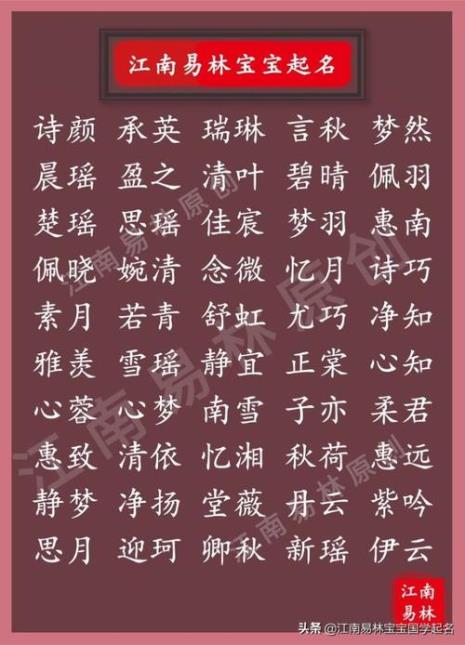 江南易林宝宝起名
诗颜 承英 瑞琳 言秋 梦然
晨瑶 盈之 清叶 碧晴 佩羽
楚瑶 思瑶 佳宸 梦羽 惠南
佩晓 婉清 念微 忆月 诗巧
素月 若青 舒虹 尤巧 净知
雅羡 雪瑶 静宜 正棠 心知
心蓉 心梦 南雪 子亦 柔君
惠致 清依 忆湘 秋荷 惠远
静梦 净扬 堂薇 丹云 紫吟
思月 迎珂 卿秋 新瑶 伊云
江南易林原创
江南易林原创
江南易林原创
江南
易林
头条 @江南易林宝宝国学起名